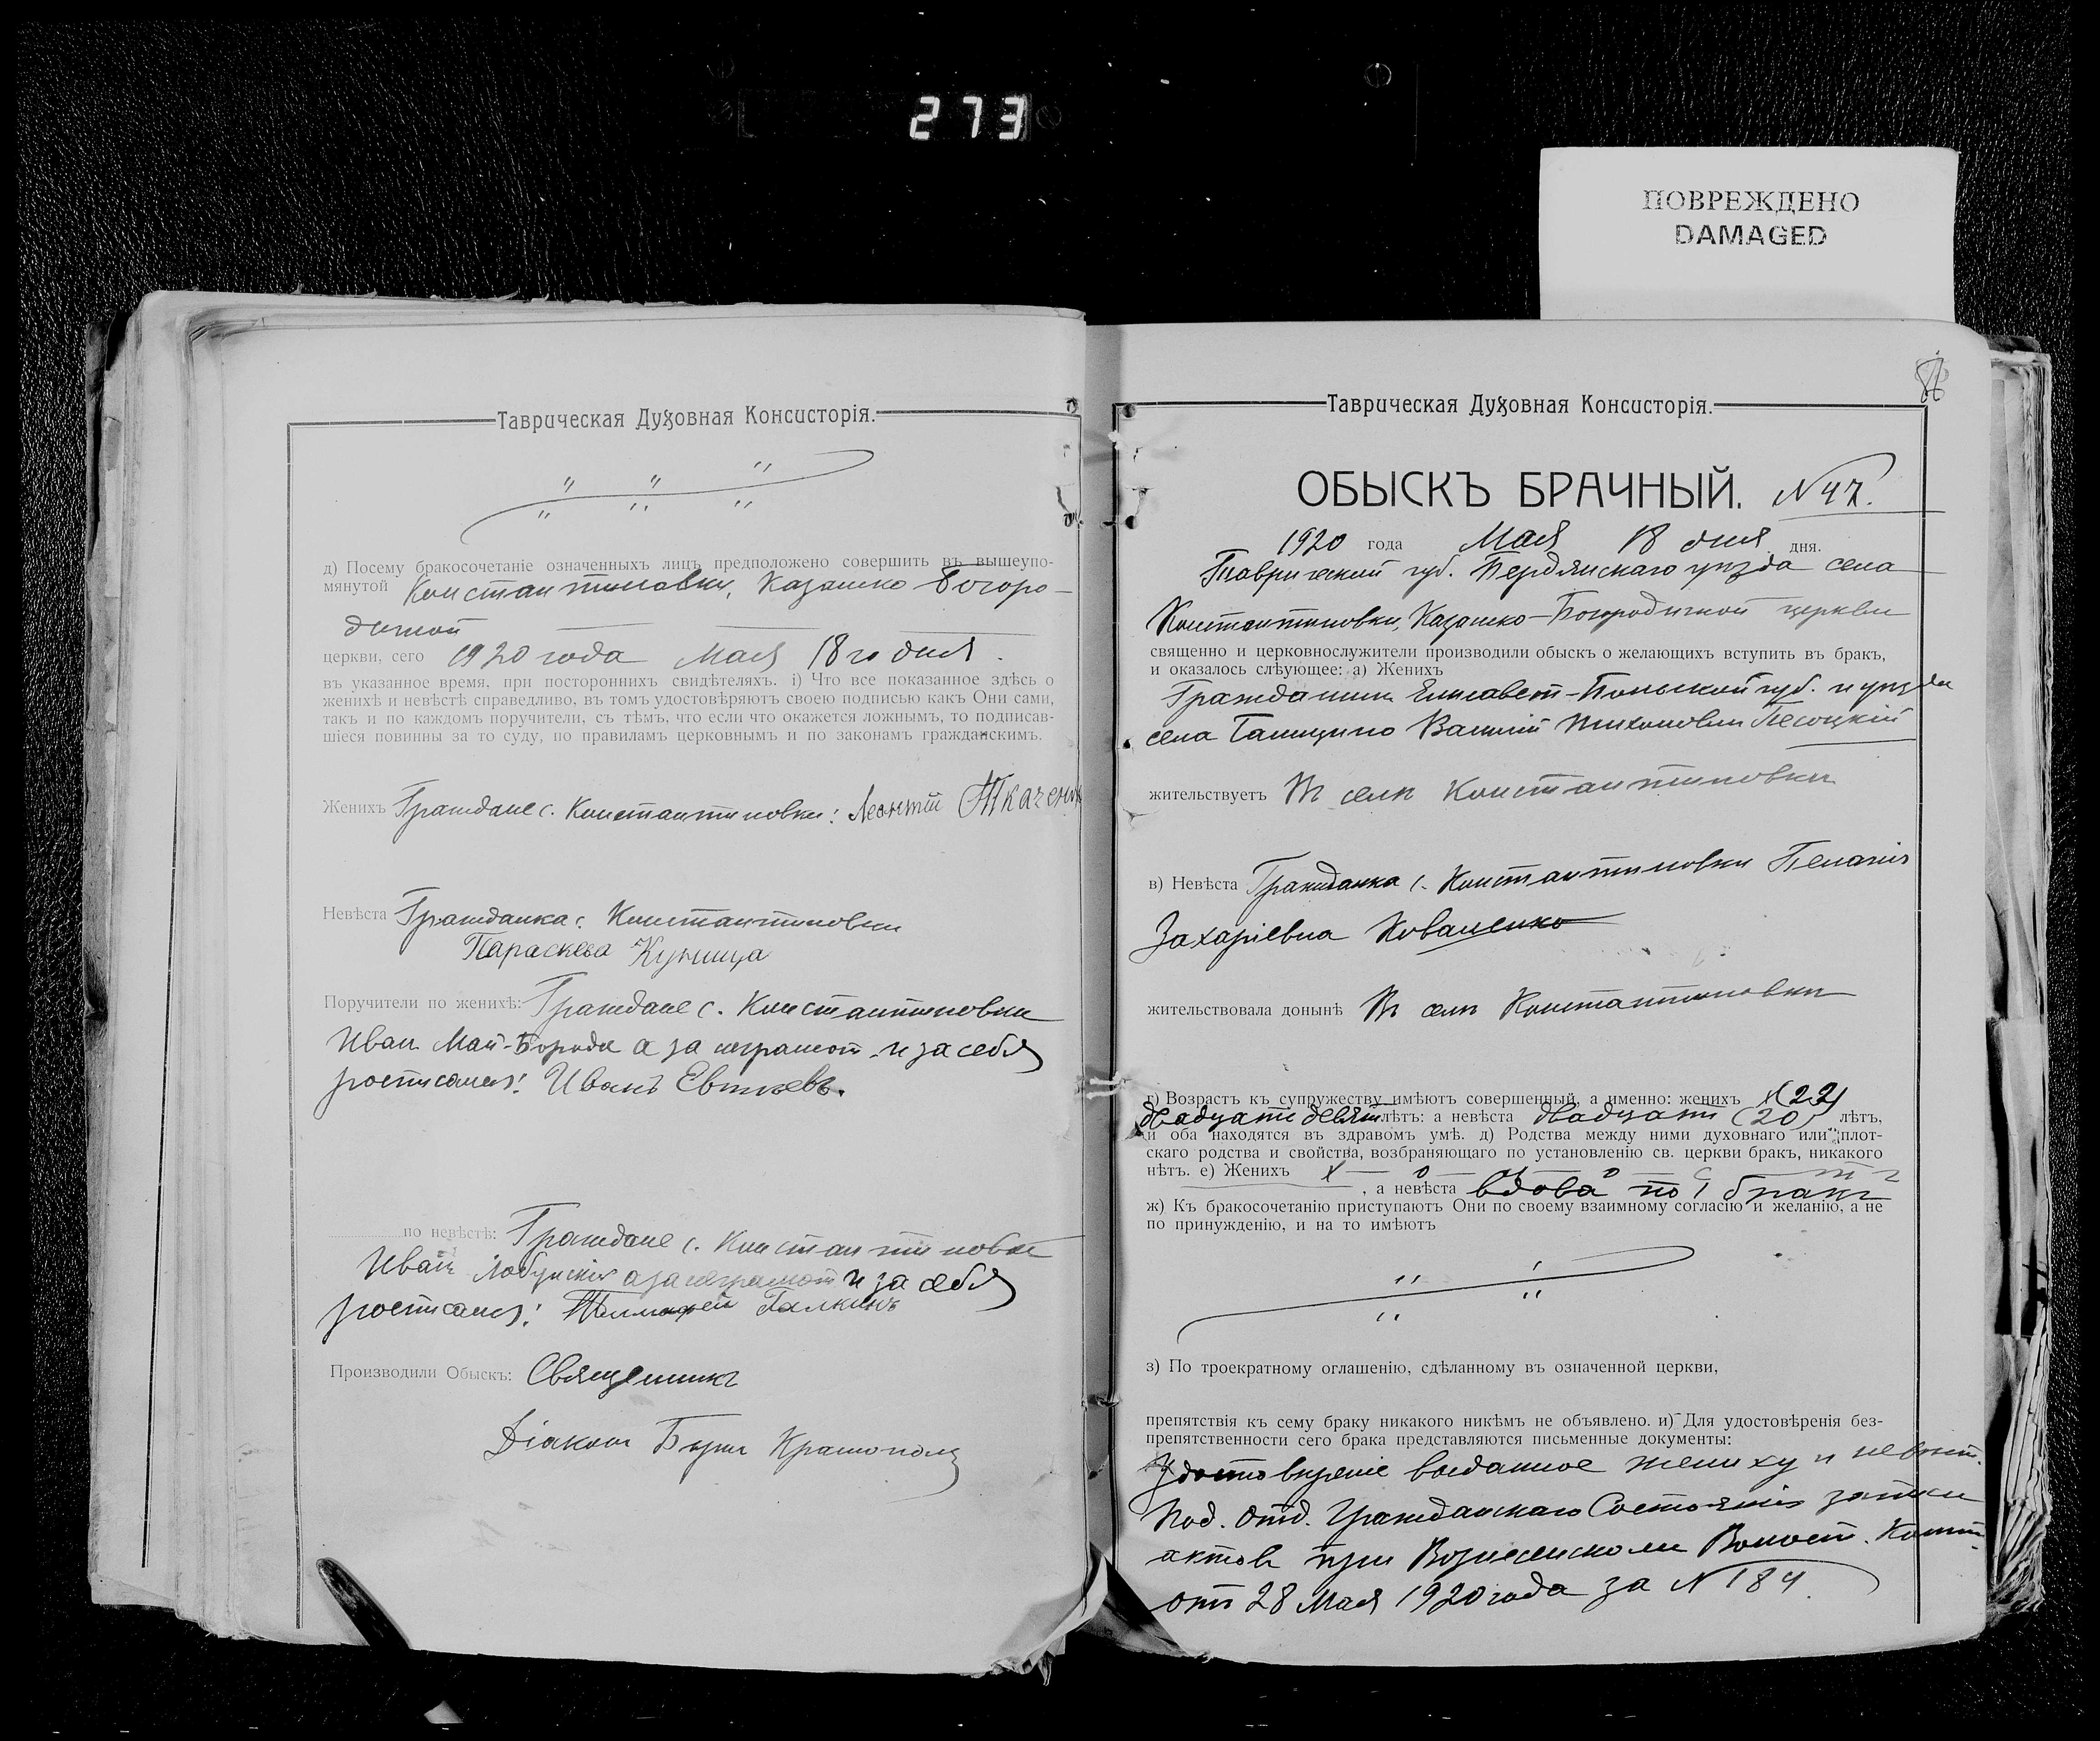 273
ПОВРЕЖДЕНО
DAMAGED
Таврическая Духовная Консисторія.
д) Посему бракосочетаніе означенныхъ лицъ предположено совершить въ вышеупо-
мянутой Константиновки, Казанско Богоро-
дичной
церкви, сего 1920 года Мая 18 го дня.
въ указанное время, при постороннихъ свидѣтеляхъ. і) Что все показанное здѣсь о
женихѣ и невѣстѣ справедливо, въ томъ удостовѣряютъ своею подписью какъ Они сами,
такъ и по каждомъ поручители, съ тѣмъ, что если что окажется ложнымъ, то подписав-
шіеся повинны за то суду, по правиламъ церковнымъ и по законамъ гражданскимъ.
Женихъ Граждане с. Константиновки: Леонтій Ткаченко
Невѣста Гражданка с. Константиновки
Параскева Куница
Поручители по женихѣ: Граждане с. Константиновки
Иван Май-Борода а за неграмот. и за себя
росписался: Иванъ Евтѣевъ.
по невѣстѣ: Граждане с. Константиновки
Иван а за неграмот и за себя
росписался: Галкинъ
Производили Обыскъ: Священникъ
Діакон
Таврическая Духовная Консисторія.
ОБЫСКЪ БРАЧНЫЙ. N 47.
1920 года Мая 18 дня дня.
Таврической губ. Бердянскаго уѣзда села
Константиновки, Казанско-Богородичной церкви
священно и церковнослужители производили обыскъ о желающихъ вступить въ бракъ,
и оказалось слѣующее: а) Женихъ
Гражданин Елисавет-Польской губ. и уѣзда
села Василій Тихонович Песоцкій
жительствуетъ В селѣ Константиновки
в) Невѣста Гражданка с. Константиновки Пелагія
Захаріевна Коваленко
жительствовала донынѣ В селѣ Константиновки
г) Возрастъ къ супружеству имѣютъ совершенный, а именно: женихъ
двадцати лѣтъ: а невѣста двадцати (20) лѣтъ,
и оба находятся въ здравомъ умѣ. д) Родства между ними духовнаго или плот-
скаго родства и свойства, возбраняющаго по установленію св. церкви бракъ, никакого
нѣтъ. е) Женихъ х — о — л — о — с — т ъ
, а невѣста вдова по 1 бракѣ
ж) Къ бракосочетанію приступаютъ Они по своему взаимному согласію и желанію, а не
по принужденію, и на то имѣютъ
з) По троекратному оглашенію, сдѣланному въ означенной церкви,
препятствія къ сему браку никакого никѣмъ не объявлено. и) Для удостовѣренія без-
препятственности сего брака представляются письменные документы:
Удостовѣреніе выданное жениху и невѣст.
Под. Отд. Гражданскаго Состоянія записи
актов при Вознесенском Волост. Комит.
от 28 Мая 1920 года за N 184.